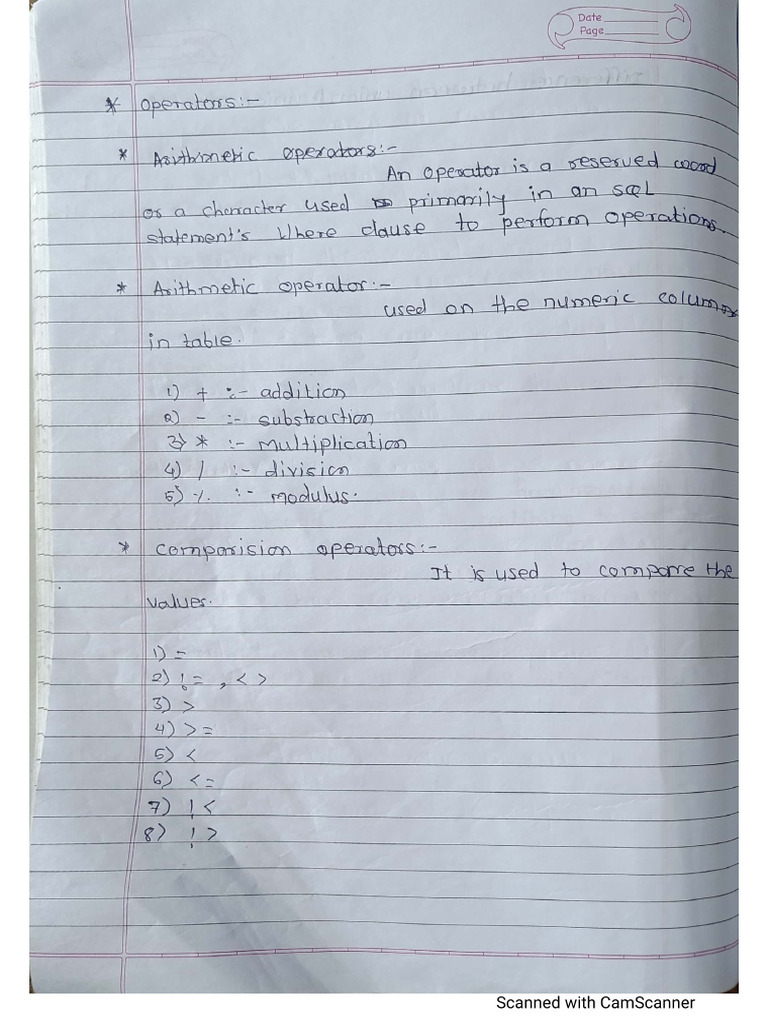 Date
Page
* Operators:-
* Arithmetic operators:-
An Operator is a reserved word
or a character used primarily in an SQL
statement's Where clause to perform operations.
* Arithmetic operator:-
used on the numeric columns
in table.
1) + :- addition
2) - :- substraction
3) * :- Multiplication
4) / :- division
5) % :- Modulus.
* Comparision operators:-
It is used to compare the
values.
1) =
2) != , < >
3) >
4) >=
5) <
6) <=
7) !<
8) !>
Scanned with CamScanner